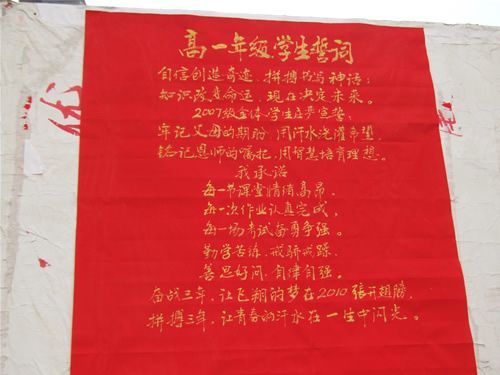 高一年级学生誓词
自信创造奇迹，拼搏书写神话；
知识改变命运，现在决定未来。
2007级全体学生庄严宣誓：
牢记父母的期盼，用汗水浇灌希望，
铭记恩师的嘱托，用智慧培育理想。
我承诺
每一节课堂情绪高昂，
每一次作业认真完成，
每一场考试奋勇争强。
勤学苦练，戒骄戒躁，
善思好问，自律自强。
奋战三年，让飞翔的梦在2010张开翅膀，
拼搏三年，让青春的汗水在一生中闪光。